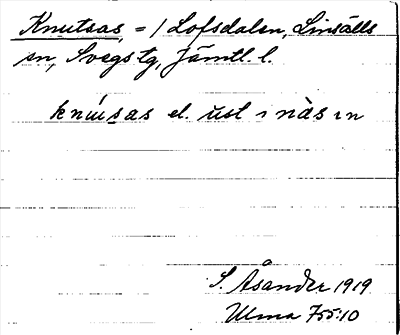 Knutsas, = / Lofsdalen, Linsälls
sn, Svegs tg, Jämtl. l.
knúsas el. ust ı nàs ın
S. Åsander 1919
Ulma 755:10